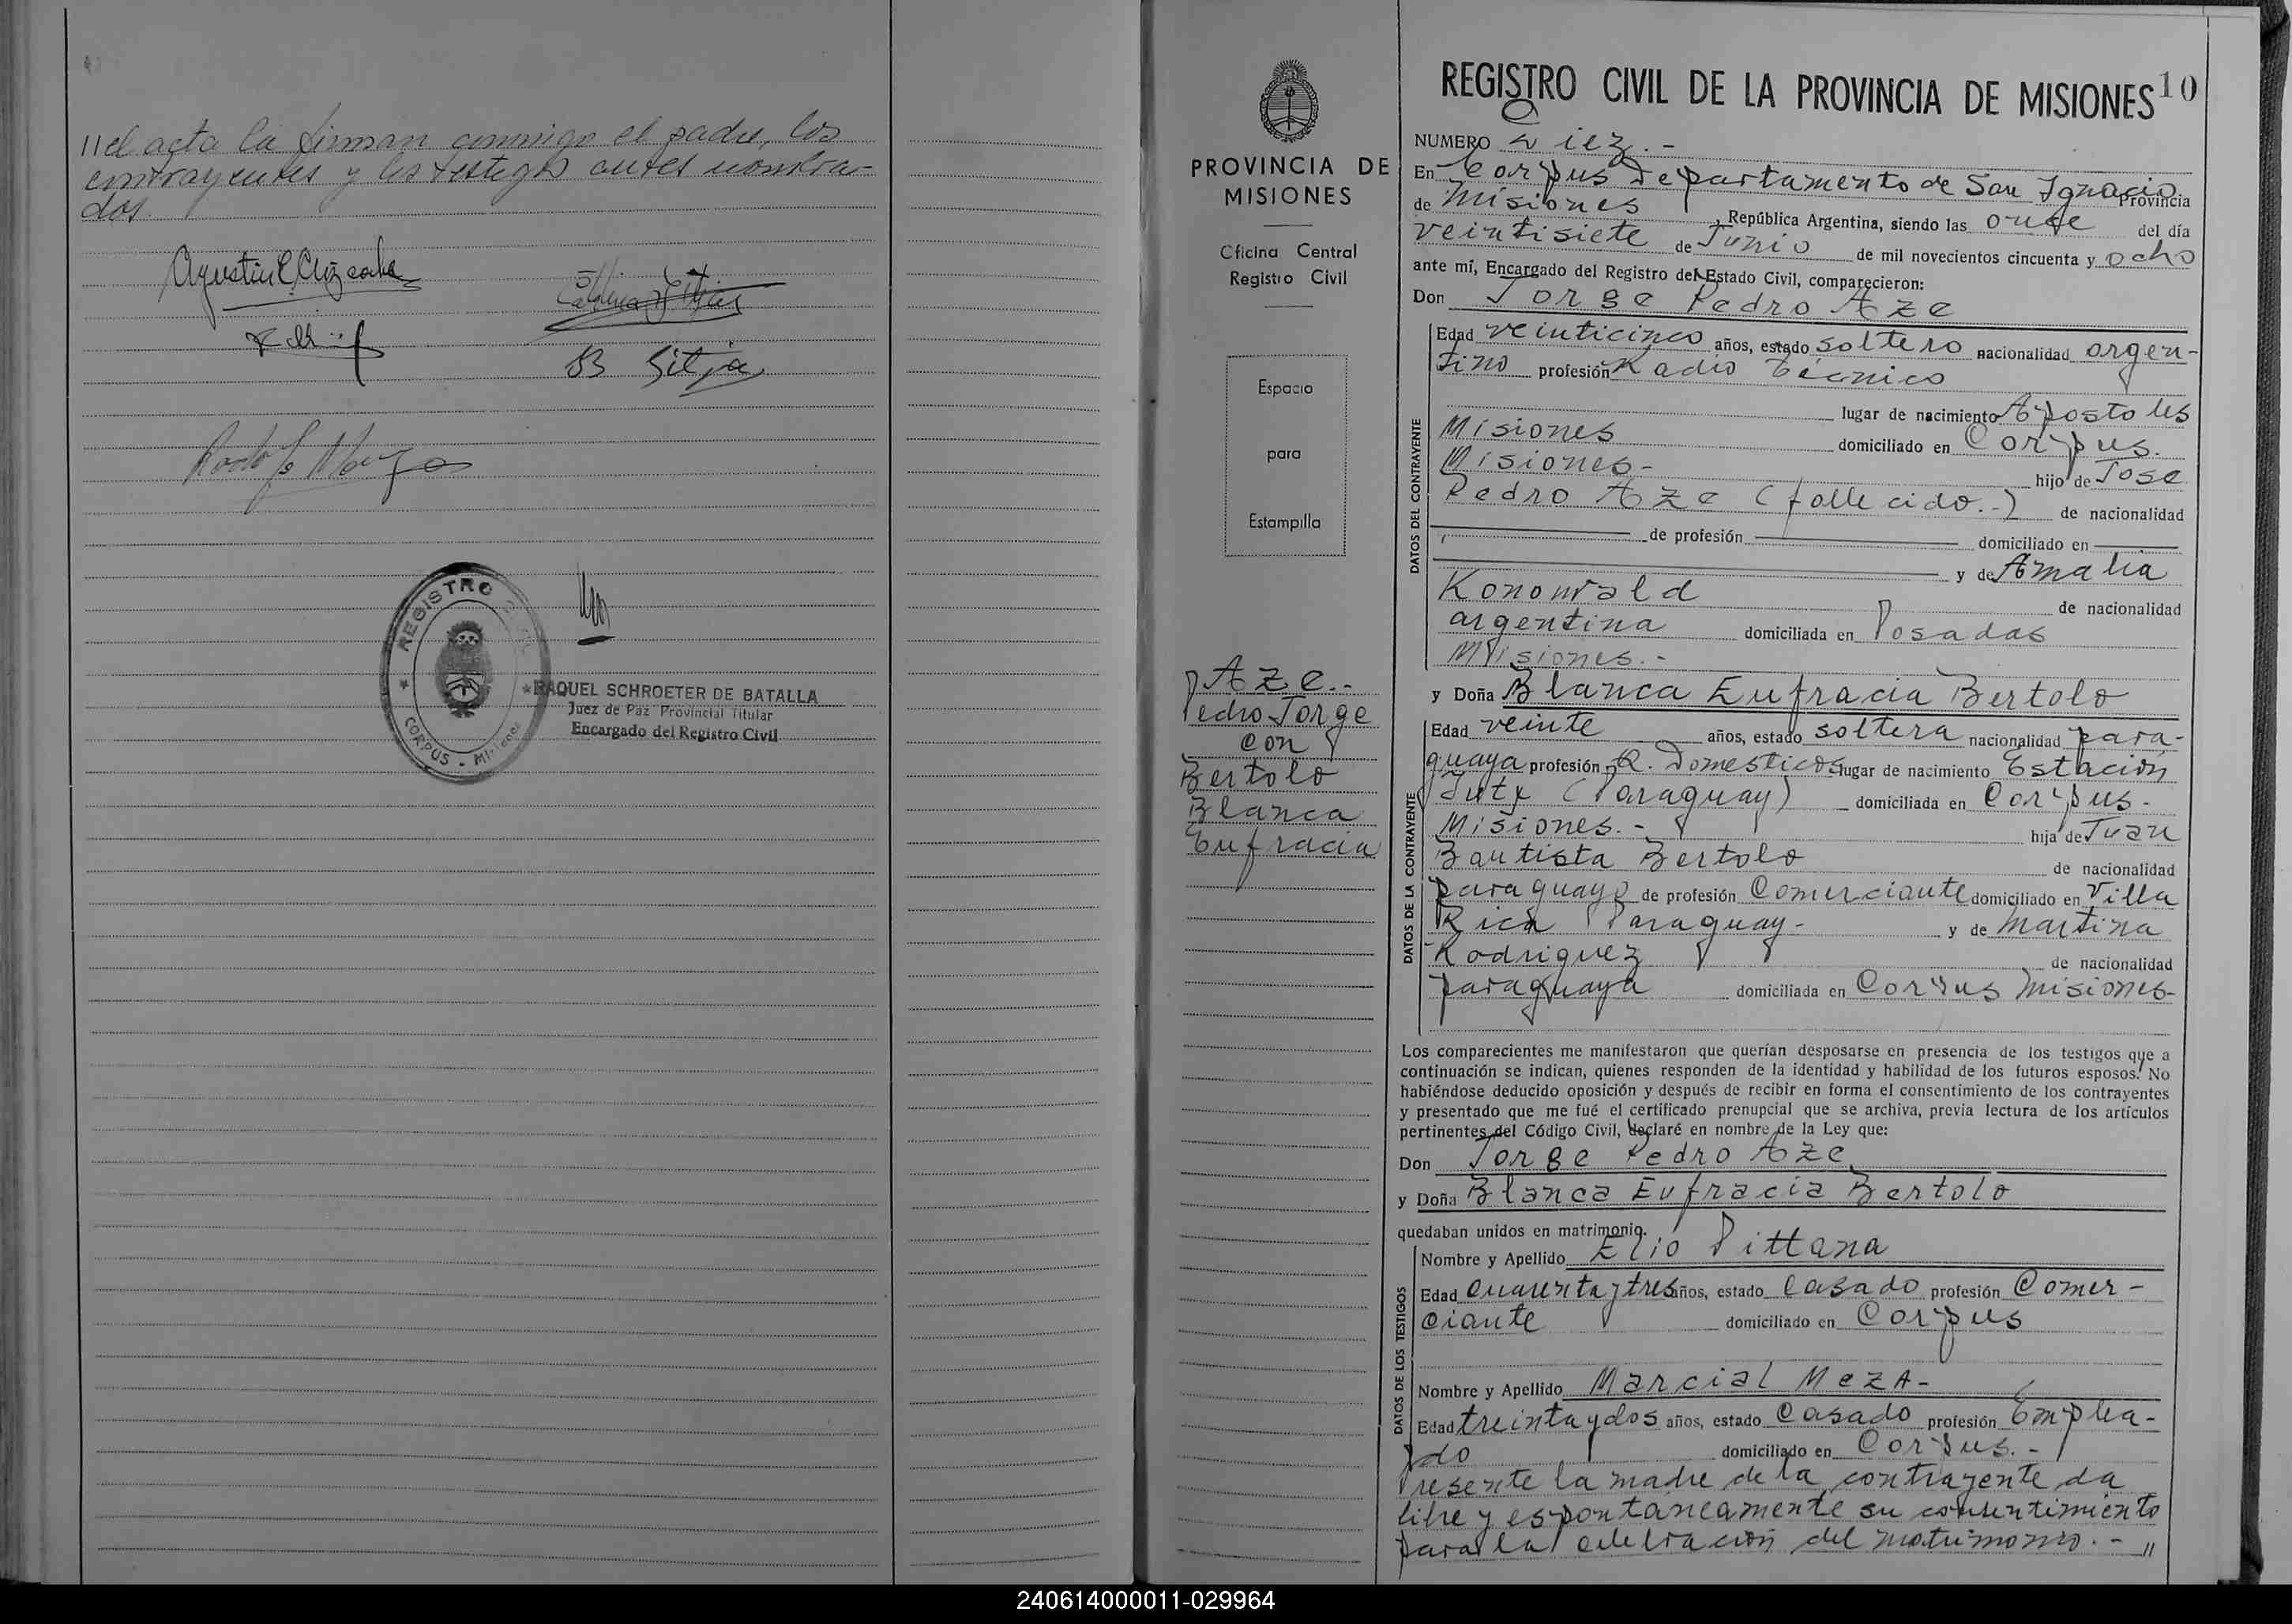 //el acta la firman conmigo el padre, los
contrayentes y los testigos antes nombra-
dos.
B Sitja
REGISTRO
CORPUS - Misiones
RAQUEL SCHROETER DE BATALLA
Juez de Paz Provincial Titular
Encargado del Registro Civil
PROVINCIA DE
MISIONES
Oficina Central
Registro Civil
Espacio
para
Estampilla
Aze.-
Pedro Jorge
con
Bertolo
Blanca
Eufracia
REGISTRO CIVIL DE LA PROVINCIA DE MISIONES 10
NUMERO Diez.-
En Corpus Departamento de San Ignacio Provincia
de Misiones, República Argentina, siendo las once del día
veintisiete de Junio de mil novecientos cincuenta y ocho
ante mí, Encargado del Registro del Estado Civil, comparecieron:
Don Jorge Pedro Aze
DATOS DEL CONTRAYENTE
Edad veinticinco años, estado soltero nacionalidad argen-
tino profesión Radio Técnico
lugar de nacimiento Apostoles
Misiones domiciliado en Corpus.
Misiones- hijo de Jose
Pedro Aze (fallecido.-) de nacionalidad
de profesión domiciliado en
y de Amalia
Kononvald de nacionalidad
argentina domiciliada en Posadas
Misiones.-
y Doña Blanca Eufracia Bertolo
DATOS DE LA CONTRAYENTE
Edad veinte años, estado soltera nacionalidad para-
guaya profesión Q. Domesticos lugar de nacimiento Estación
Iuty (Paraguay) domiciliada en Corpus-
Misiones.- hija de Juan
Bautista Bertolo de nacionalidad
paraguayo de profesión Comerciante domiciliado en Villa
Rica Paraguay- y de Martina
Rodriguez de nacionalidad
paraguaya domiciliada en Corpus Misiones-
Los comparecientes me manifestaron que querían desposarse en presencia de los testigos que a
continuación se indican, quienes responden de la identidad y habilidad de los futuros esposos. No
habiéndose deducido oposición y después de recibir en forma el consentimiento de los contrayentes
y presentado que me fué el certificado prenupcial que se archiva, previa lectura de los artículos
pertinentes del Código Civil, declaré en nombre de la Ley que:
Don Jorge Pedro Aze
y Doña Blanca Eufracia Bertolo
quedaban unidos en matrimonio.
DATOS DE LOS TESTIGOS
Nombre y Apellido Elio Pittana
Edad cuarenta y tres años, estado Casado profesión Comer-
ciante domiciliado en Corpus
Nombre y Apellido Marcial Meza-
Edad treinta y dos años, estado Casado profesión Emplea-
do domiciliado en Corpus.-
Presente la madre de la contrayente da
libre y espontaneamente su consentimiento
para la celebracion del matrimonio.- //
240614000011-029964